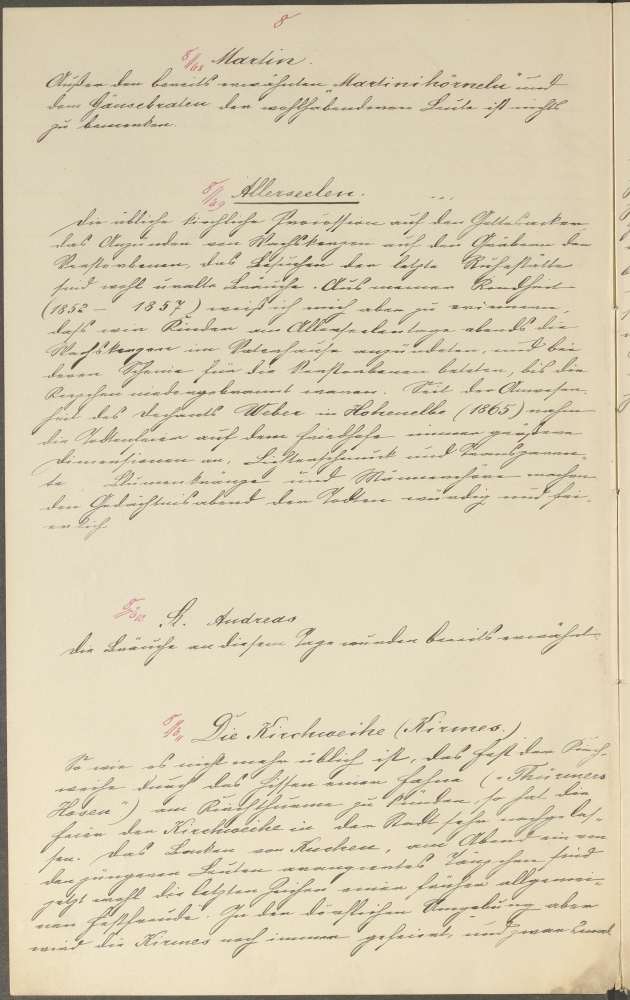 8
8/68 Martin.
Außer den bereits erwähnten „Martinihörneln“ und
dem Gänsebraten der wohlhabenderen Leute ist nichts
zu bemerken.
8/69 Allerseelen.
Die übliche kirchliche Procession auf den Gottesacker
das Anzünden von Wachskerzen auf den Gräbern der
Verstorbenen, das Besuchen der letzte Ruhestätte
sind wohl uralte Bräuche. Aus meiner Kindheit
(1852 – 1857) weiß ich mich aber zu erinnern,
daß wir Kinder am Allerseelentage abends die
Wachskerzen im Vaterhause anzündeten, und bei
deren Scheine für die Verstorbenen beteten, bis die
Kerzchen niedergebrannt waren. Seit der Anwesen-
heit des Dechants Weber in Hohenelbe (1865) nahm
die Todtenfeier auf dem Friedhofe immer größere
Dimensionen an, Lichterschmuck und Transparen-
te Blumenkränze und Männerchöre machen
den Gedächtnisabend der Todten würdig und fei-
erlich.
St. Andreas
Die Bräuche an diesem Tage wurden bereits erwähnt
Die Kirchweihe (Kirmes.)
So wie es nicht mehr üblich ist, das Fest der Kirch-
weihe durch das Hissen einer Fahne („Thürmers
Hosen“) am Kirchthurme zu künden, so hat die
Feier der Kirchweihe in der Stadt sehr nachgelas-
sen. Das Backen von Kuchen, am Abend ein von
den jüngeren Leuten arrangiertes Tänzchen sind
jetzt wohl die letzten Zeichen einer früher allgemei-
nen Festfreude. In der dörflichen Umgebung aber
wird die Kirmes noch immer gefeiert, und zwar